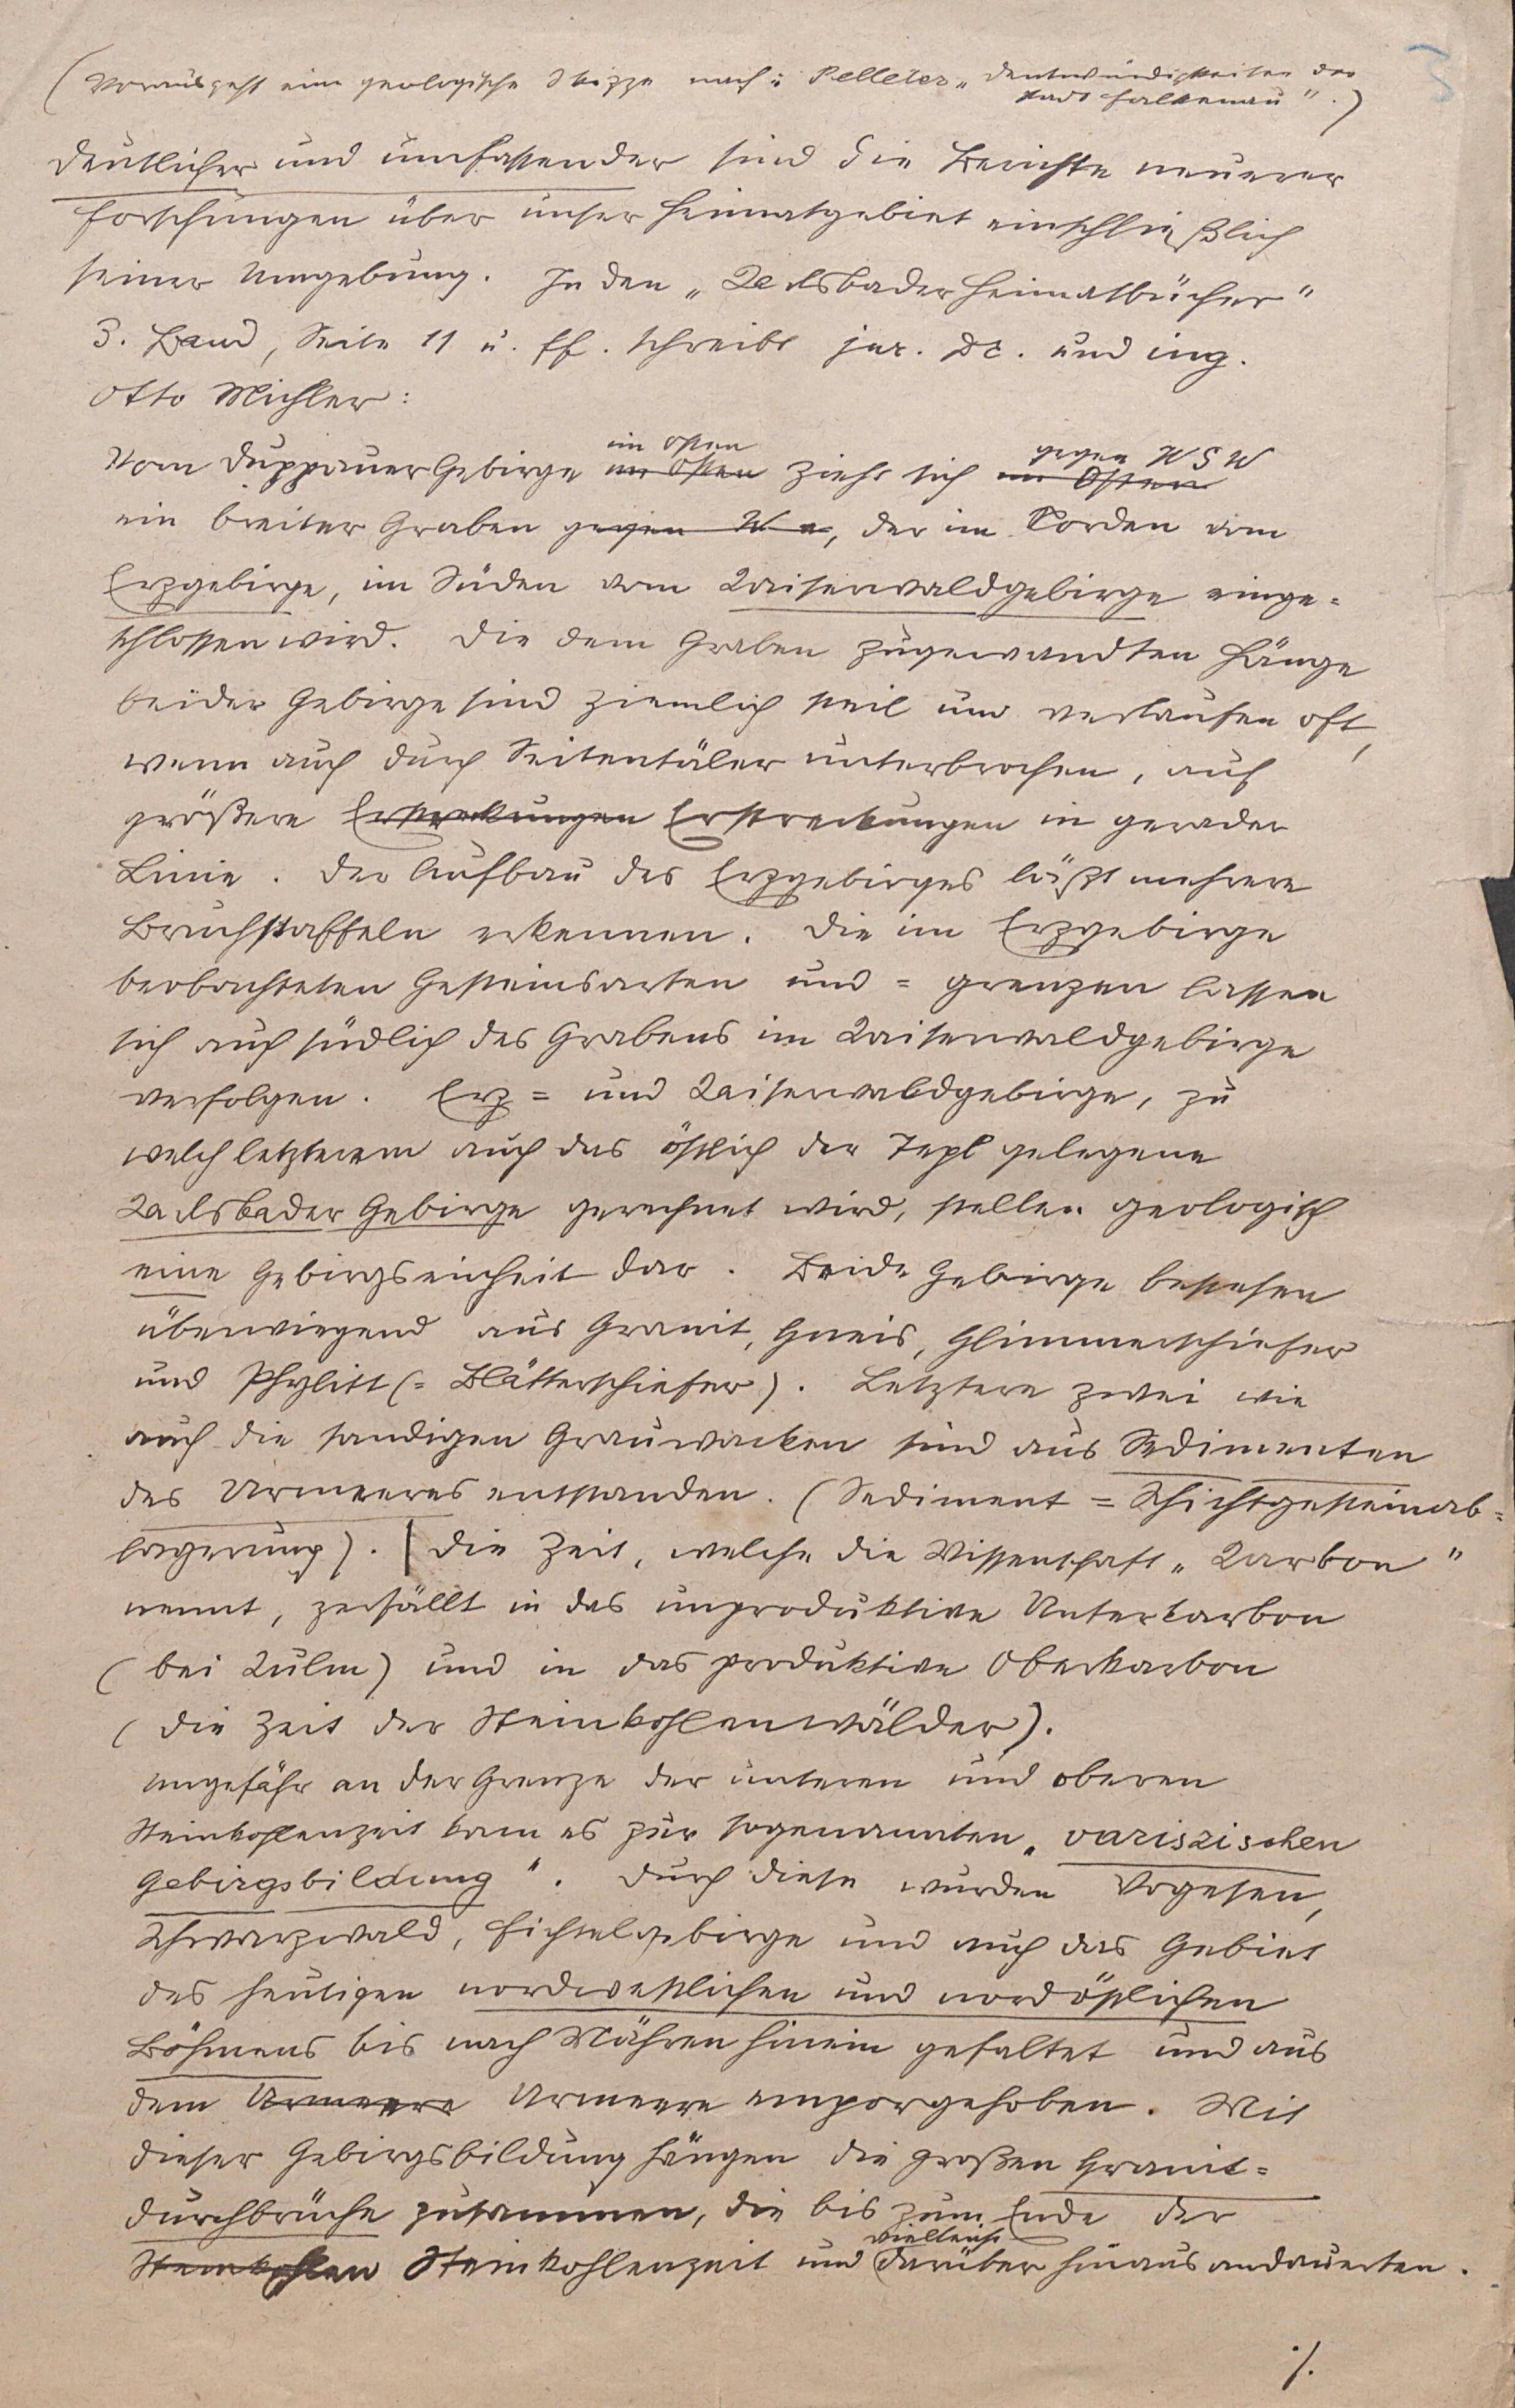 3
(Vorausgeht eine geologische Skizze nach: Pelleter „Denkwürdigkeiten der
Stadt Falkenau".)
Deutlicher und umfassender sind die Berichte neuerer
Forschungen über unser Heimatgebiet einschließlich
seiner Umgebung. In den „Karlsbader Heimatbücher"
3. Band, Seite 11 u. ff. schreibt jur. Dr. und ing.
Otto Michler:
im Osten gegen WSW
Vom Duppauer Gebirge im Osten zieht sich im Osten
ein breiter Graben gegen W, der im Norden vom
Erzgebirge, im Süden vom Kaiserwaldgebirge einge=
schlossen wird. Die dem Graben zugewandten Hänge
beider Gebirge sind ziemlich steil und verlaufen oft,
wenn auch durch Seitentäler unterbrochen, auf
größere Erstreckungen in gerader
Linie. Der Aufbau des Erzgebirges läßt mehrere
Bruchstaffeln erkennen. Die im Erzgebirge
beobachteten Gesteinsarten und = grenzen lassen
sich auch südlich des Grabens im Kaiserwaldgebirge
verfolgen. Erz = und Kaiserwaldgebirge, zu
welch letzterem auch das östlich der Tepl gelegene
Karlsbader Gebirge gerechnet wird, stellen geologisch
eine Gebirgseinheit dar. Beide Gebirge bestehen
überwiegend aus Granit, Gneis, Glimmerschiefer
und Phylitt (= Blätterschiefer). Letztere zwei wie
auch die sandigen Grauwacken sind aus Sedimenten
des Urmeeres entstanden. (Sediment = Schichtgesteinab=
lagerung). | Die Zeit, welche die Wissenschaft „Karbon"
nennt, zerfällt in das unproduktive Unterkarbon
(bei Kulm) und in das produktive Oberkarbon
(die Zeit der Steinkohlenwälder).
Ungefähr an der Grenze der unteren und oberen
Steinkohlenzeit kam es zur sogenannten „variszischen
Gebirgsbildung". Durch diese wurden Vogesen,
Schwarzwald, Fichtelgebirge und auch das Gebiet
des heutigen nordwestlichen und nordöstlichen
Böhmens bis nach Mähren hinein gefaltet und aus
dem Urmeere Urmeere emporgehoben. Mit
dieser Gebirgsbildung hängen die großen Granit=
durchbrüche zusammen, die bis zum Ende der
vielleicht
Steinkohlen Steinkohlenzeit und darüber hinaus andauerten.
./.